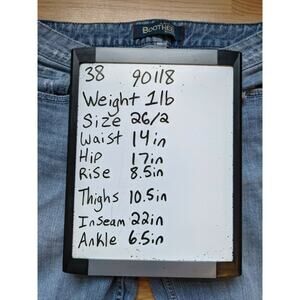 BOOTHEEL
38 90118
Weight 1lb
Size 26/2
Waist 14in
Hip 17in
Rise 8.5in
Thighs 10.5in
Inseam 22in
Ankle 6.5in